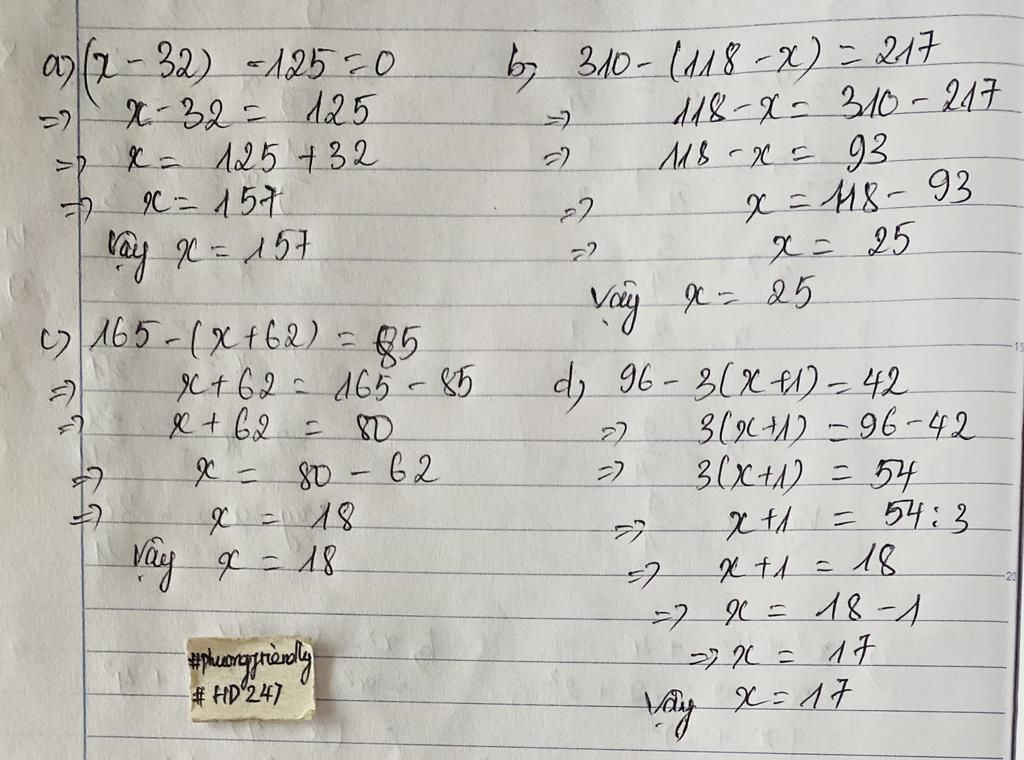 a) (x - 32) - 125 = 0
=> x - 32 = 125
=> x = 125 + 32
=> x = 157
Vậy x = 157
b) 310 - (118 - x) = 217
=> 118 - x = 310 - 217
=> 118 - x = 93
=> x = 118 - 93
=> x = 25
Vậy x = 25
c) 165 - (x + 62) = 85
=> x + 62 = 165 - 85
=> x + 62 = 80
=> x = 80 - 62
=> x = 18
Vậy x = 18
d) 96 - 3(x + 1) = 42
=> 3(x + 1) = 96 - 42
=> 3(x + 1) = 54
=> x + 1 = 54 : 3
=> x + 1 = 18
=> x = 18 - 1
=> x = 17
Vậy x = 17
#phuongfriendly
# HD 247
15
20